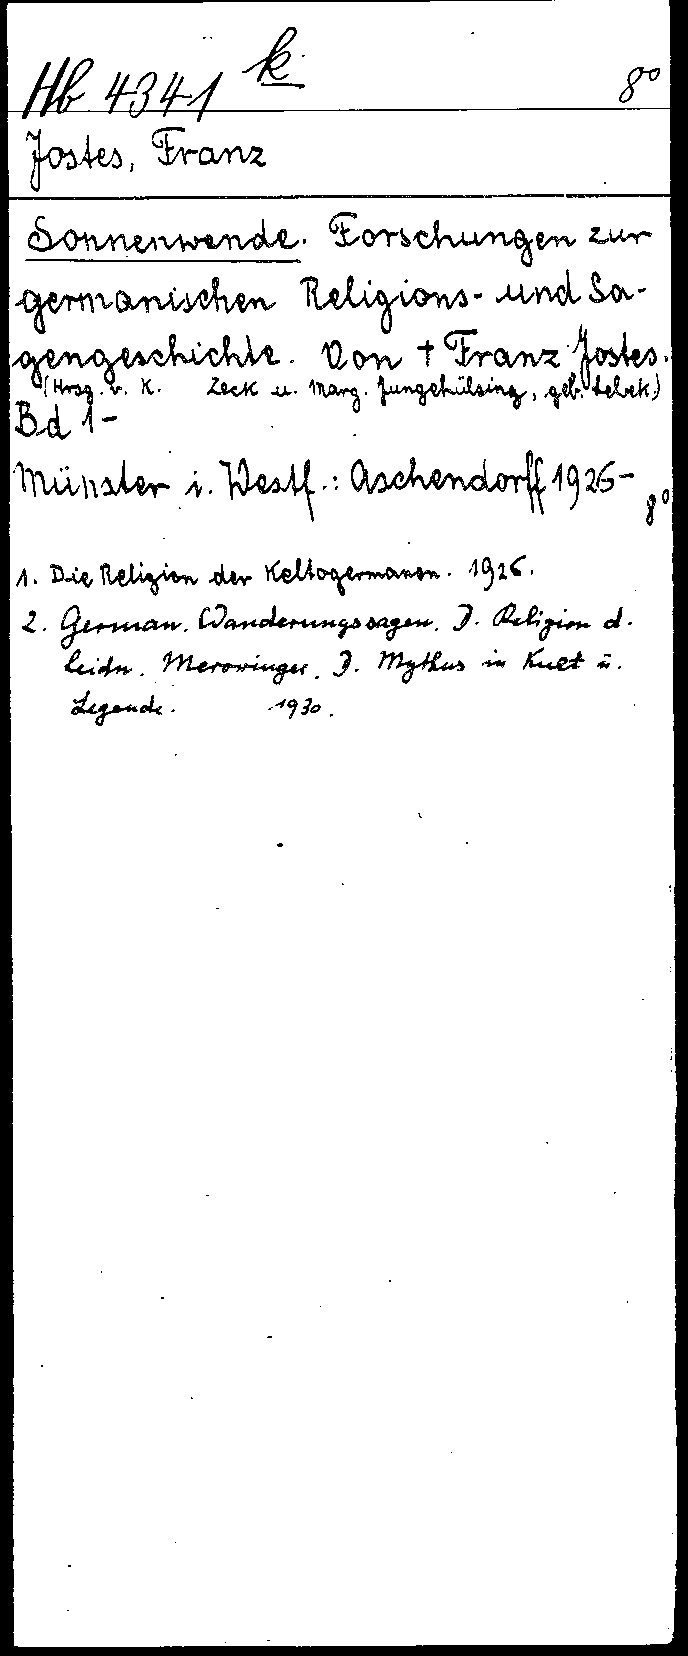 Hb 4341 k 8°
Jostes, Franz
Sonnenwende. Forschungen zur
germanischen Religions- und Sa-
gengeschichte. Von † Franz Jostes.
(Hrsg. v. K. Zeck u. Marg. Jungehülsing, geb. Lebek)
Bd 1-
Münster i. Westf.: Aschendorff 1926-
8°
1. Die Religion der Keltogermanen. 1926.
2. German. Wanderungssagen. D. Religion d.
heidn. Merowinger. D. Mythus in Kult u.
Legende. 1930.